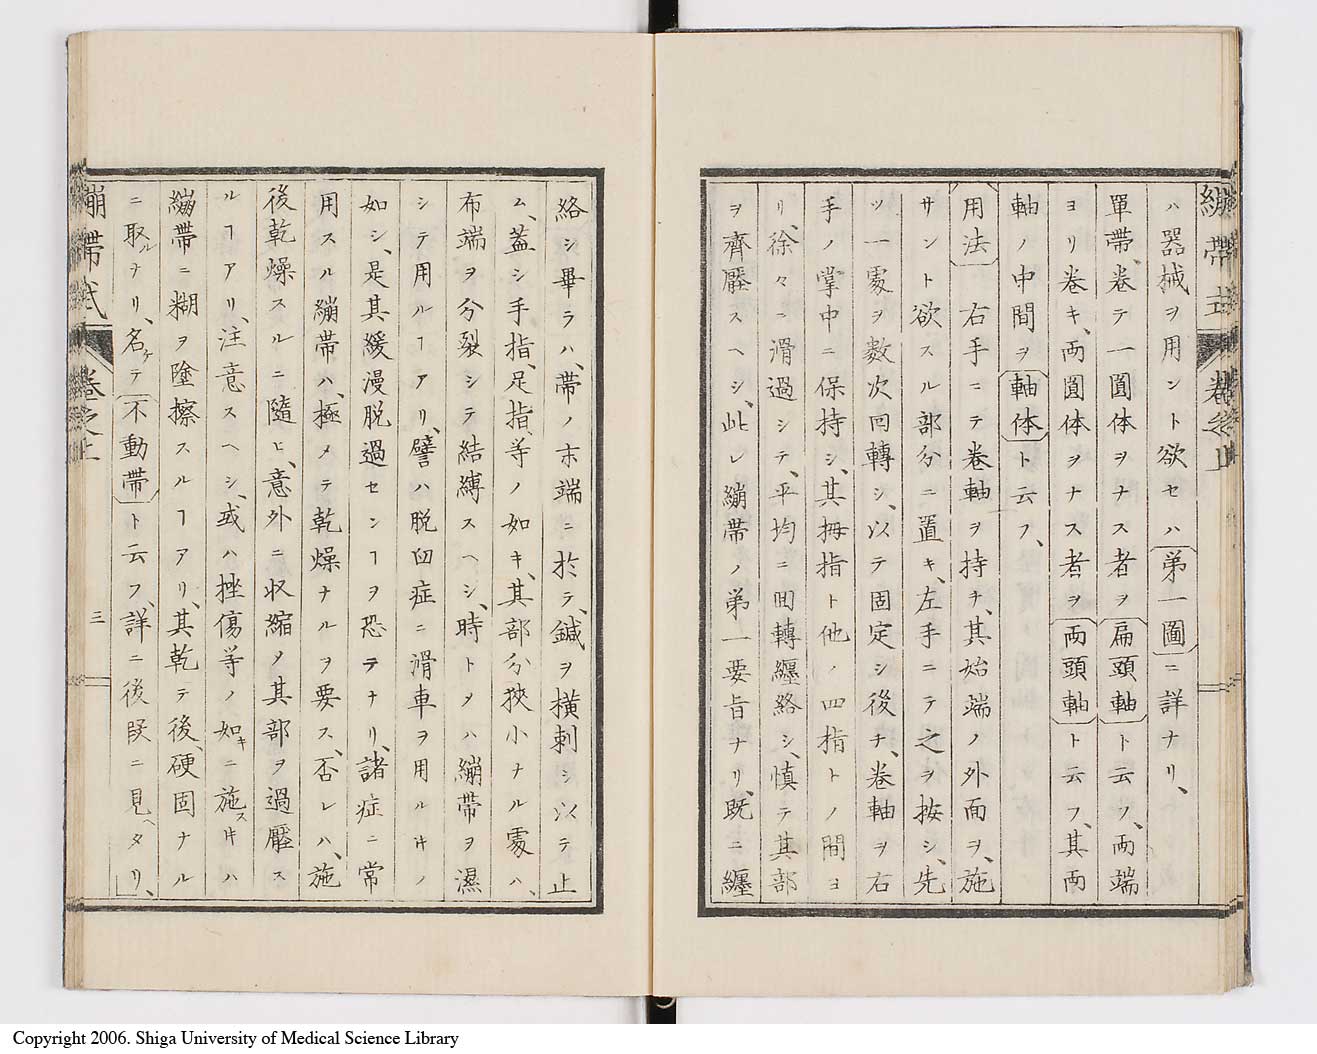 繃帶式 卷之上
ハ器械ヲ用ント欲セハ第一圖ニ詳ナリ、
單帶、卷テ一圓体ヲナス者ヲ扁頭軸ト云フ、両端
ヨリ卷キ、両圓体ヲナス者ヲ両頭軸ト云フ、其両
軸ノ中間ヲ軸体ト云フ、
用法 右手ニテ卷軸ヲ持チ、其始端ノ外面ヲ、施
サント欲スル部分ニ置キ、左手ニテ之ヲ按シ、先
ツ一處ヲ數次回轉シ、以テ固定シ後チ、卷軸ヲ右
手ノ掌中ニ保持シ、其拇指ト他ノ四指トノ間ヨ
リ、徐々ニ滑過シテ、平均ニ回轉纒絡シ、慎テ其部
ヲ齊壓スヘシ、此レ繃帯ノ第一要旨ナリ、既ニ纒
絡シ畢ラハ、帯ノ末端ニ於テ、鍼ヲ横刺シ以テ止
ム、蓋シ手指、足指、等ノ如キ、其部分狹小ナル處ハ、
布端ヲ分裂シテ結縛スヘシ、時トメハ繃帯ヲ濕
シテ用ルヿアリ、譬ハ脱臼症ニ滑車ヲ用ルヰノ
如シ、是其緩漫脱過センヿヲ恐テナリ、諸症ニ常
用スル繃帯ハ、極メテ乾燥ナルヲ要ス、否レハ、施
後乾燥スルニ隨ヒ、意外ニ収縮ノ其部ヲ過壓ス
ルヿアリ、注意スヘシ、或ハ挫傷等ノ如キニ施スヰハ
繃帯ニ糊ヲ塗擦スルヿアリ、其乾テ後、硬固ナル
ニ取ルナリ、名ケテ不動帯ト云フ、詳ニ後段ニ見ヘタリ、
繃帶式 卷之上 三
Copyright 2006. Shiga University of Medical Science Library